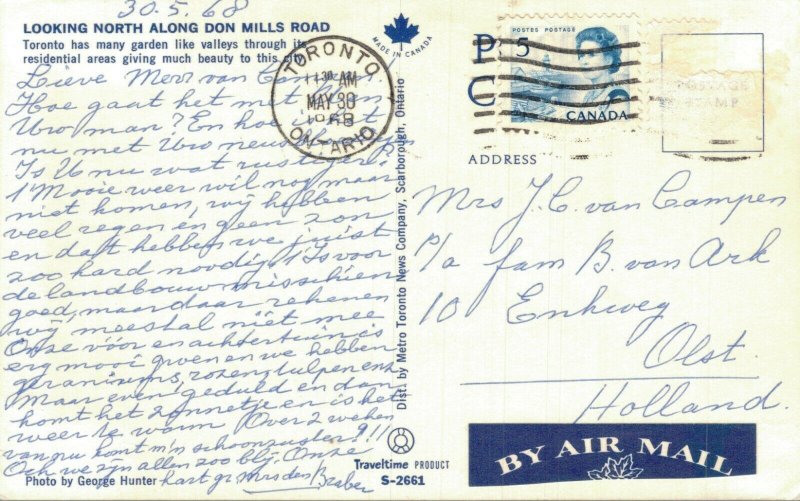 30.5.68
LOOKING NORTH ALONG DON MILLS ROAD
Toronto has many garden like valleys through its
residential areas giving much beauty to this city.
Lieve Mevr van
Hoe gaat het met U en
Uw man? En hoe is het
nu met Uw neus
Is U nu wat rustiger?
't Mooie weer wil nog maar
niet komen, wij hebben
veel regen en geen zon
en dat hebben we juist
zoo hard noodig. 't Is voor
de landbouw misschien
goed, maar daar rekenen
wij meestal niet mee
Onze vóór en achtertuin is
erg mooi groen en we hebben
geraniums, rozen, tulpen enz
Maar even geduld en dan
komt het zonnetje en is het
weer te warm. Over 2 weken
van nu komt m'n schoonzuster!!!
Och we zijn allen zoo blij. Onze
hart. gr. Mrs den Braber
Photo by George Hunter
MADE IN CANADA
TORONTO
11 30 AM
MAY 30
1968
ONTARIO
Dist. by Metro Toronto News Company, Scarborough, Ontario
Traveltime PRODUCT
S-2661
P
C
POSTES POSTAGE
5
CANADA
POSTAGE
STAMP
ADDRESS
Mrs J. C. van Campen
p/a fam B. van Ark
10 Enkweg
Olst.
Holland.
BY AIR MAIL